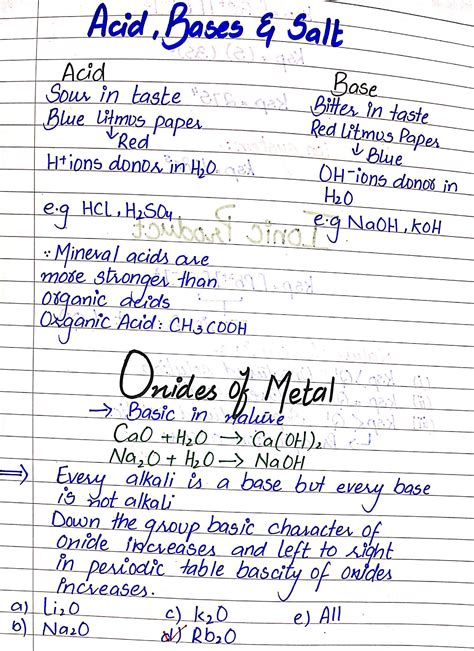 Acid, Bases & Salt
Acid
Sour in taste
Blue litmus paper
↓ Red
H+ ions donor in H₂O
e.g HCl, H₂SO₄
Base
Bitter in taste
Red Litmus Paper
↓ Blue
OH⁻ ions donor in
H₂O
e.g NaOH, KOH
∵ Mineral acids are
more stronger than
organic acids
Organic Acid: CH₃COOH
Oxides of Metal
→ Basic in nature
CaO + H₂O → Ca(OH)₂
Na₂O + H₂O → NaOH
⇒ Every alkali is a base but every base
is not alkali
Down the group basic character of
oxide increases and left to right
in periodic table bascity of oxides
increases.
a) Li₂O c) K₂O e) All
b) Na₂O d) Rb₂O